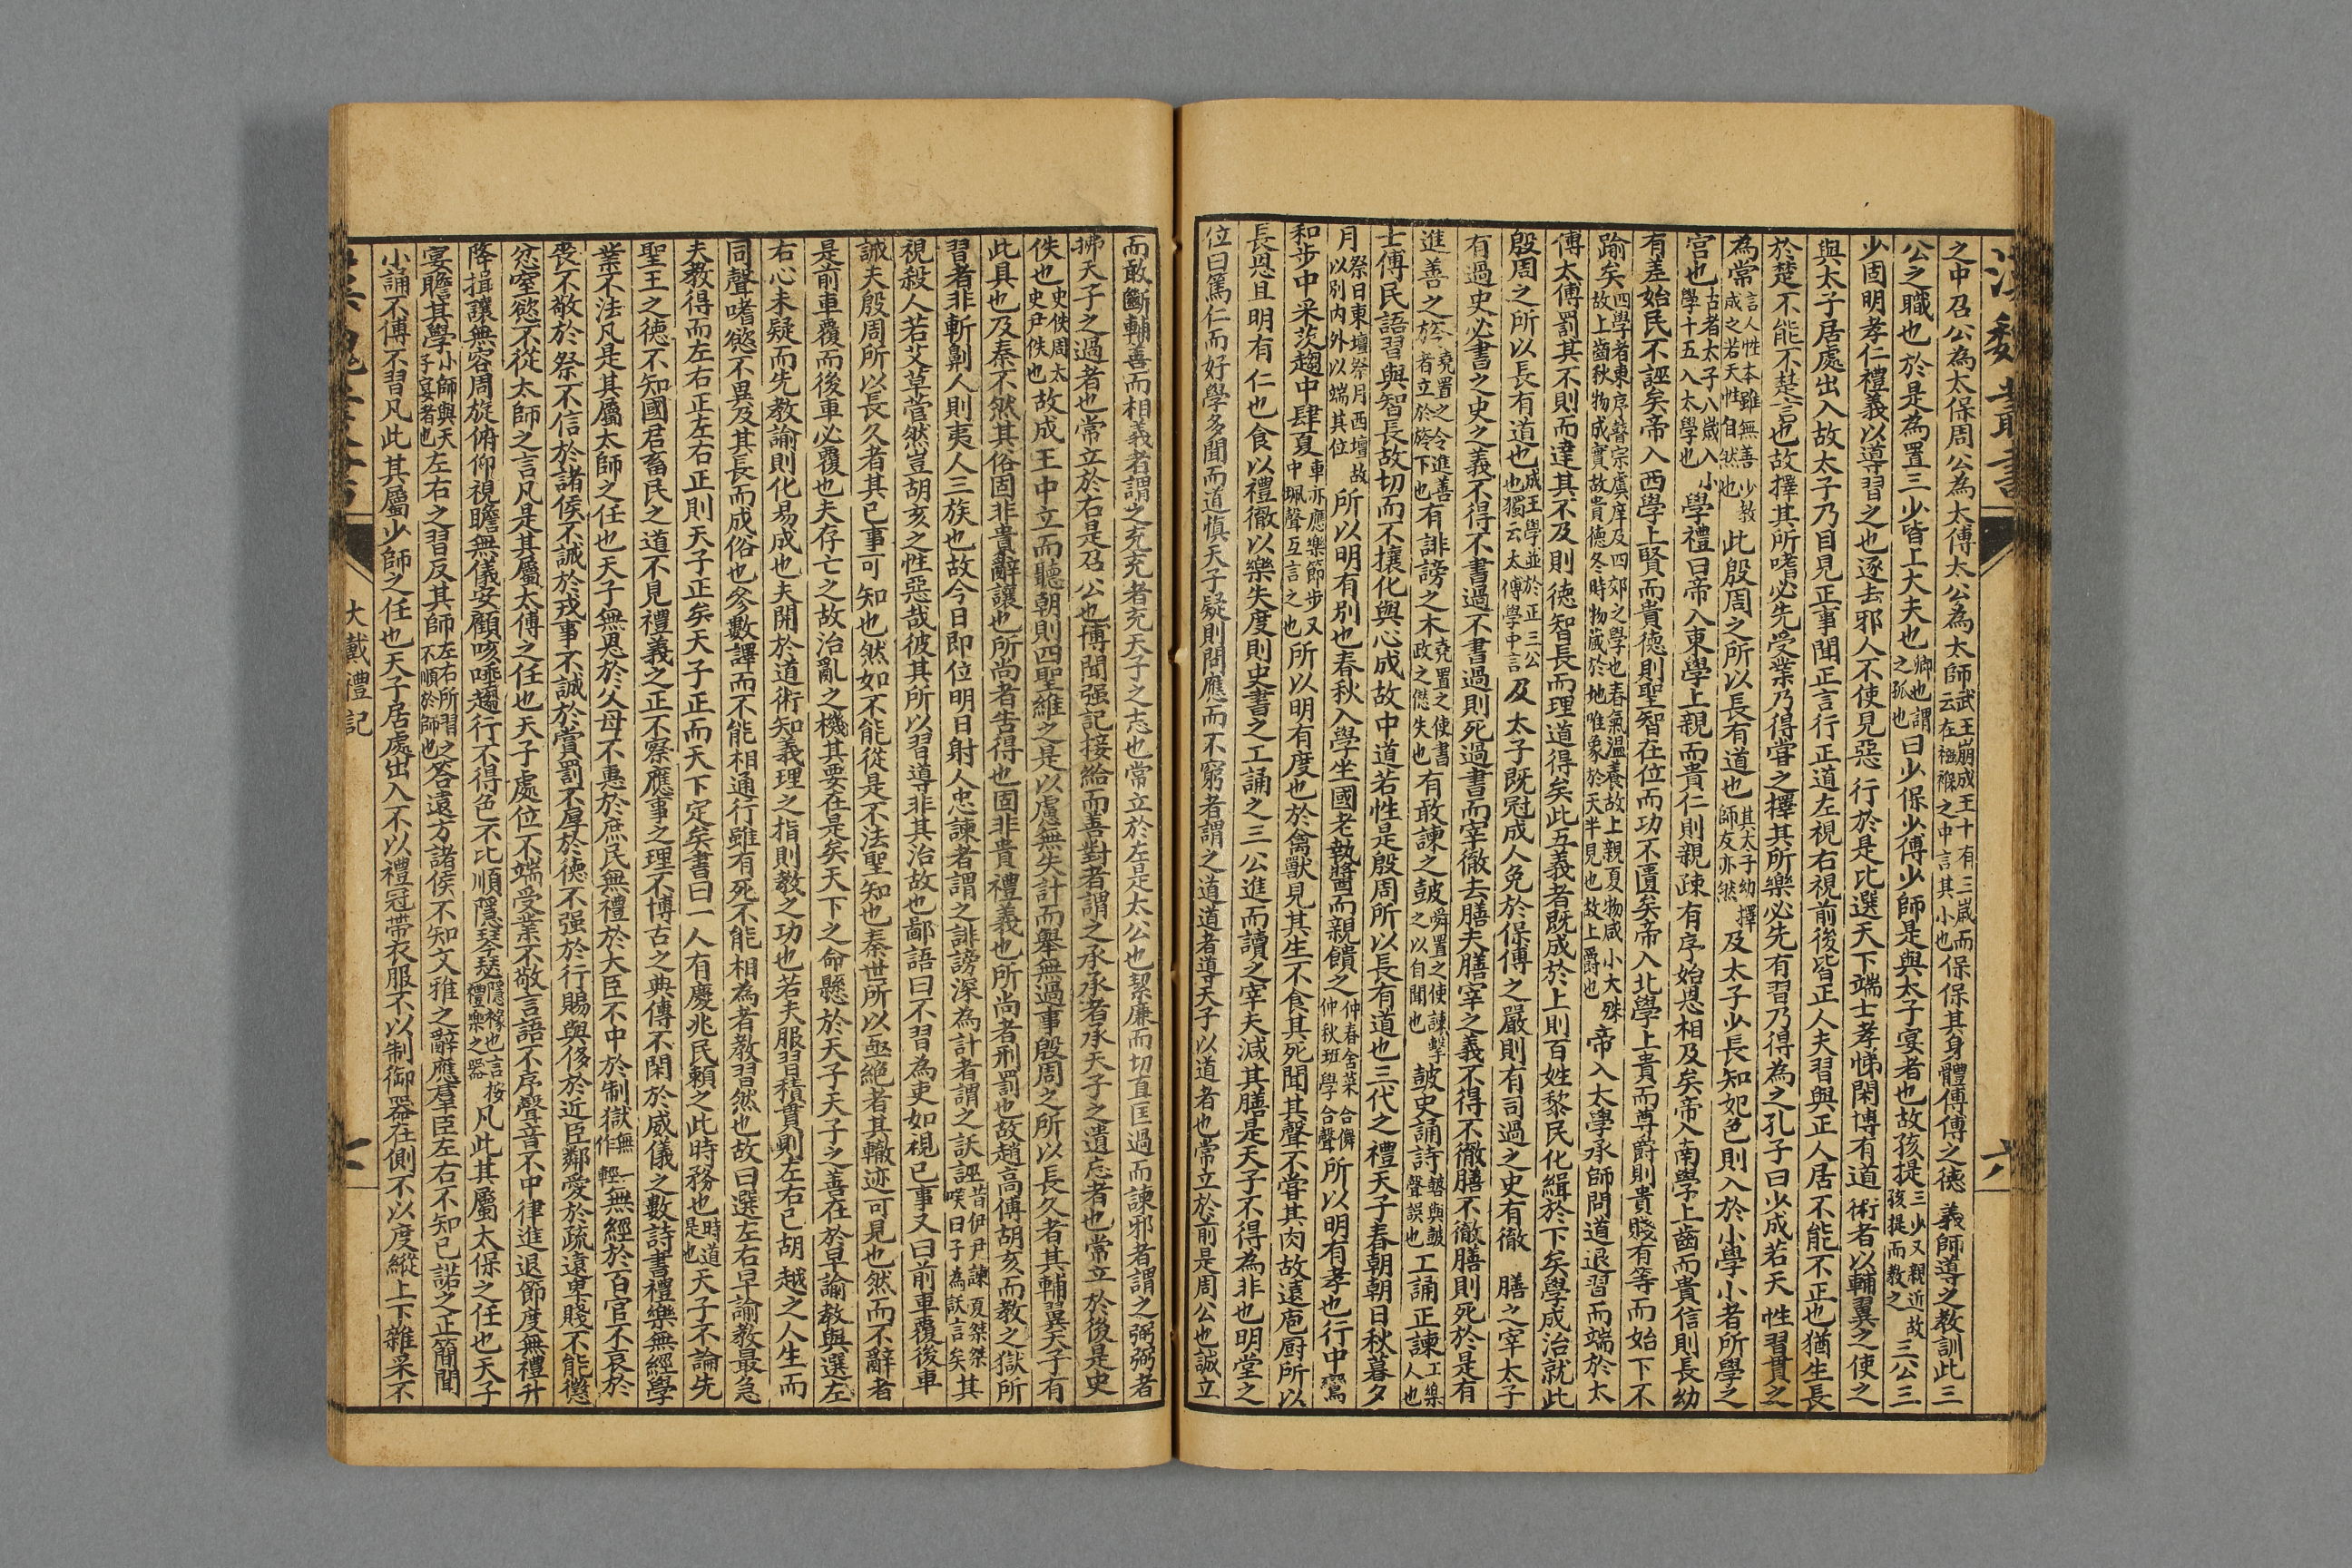 漢魏叢書
六
之中召公為太保周公為太傅太公為太師武王崩成王十有三歲而云在襁褓之中言其小也保保其身體傅傅之德義師導之教訓此三
公之職也於是為置三少皆上大夫也卿也謂之孤也曰少保少傅少師是與太子宴者也故孩提三少又親近故孩提而教之三公三
少固明孝仁禮義以導習之也逐去邪人不使見惡行於是比選天下端士孝悌閑博有道術者以輔翼之使之
與太子居處出入故太子乃目見正事聞正言行正道左視右視前後皆正人夫習與正人居不能不正也猶生長
於楚不能不楚言也故擇其所嗜必先受業乃得嘗之擇其所樂必先有習乃得為之孔子曰少成若天性習貫之
為常言人性本雖無善少教成之若天性自然也此殷周之所以長有道也其太子幼擇師友亦然及太子少長知妃色則入於小學小者所學之
宮也古者太子八歲入小學十五入太學也學禮曰帝入東學上親而貴仁則親疎有序始恩相及矣帝入南學上齒而貴信則長幼
有差始民不誣矣帝入西學上賢而貴德則聖智在位而功不匱矣帝入北學上貴而尊爵則貴賤有等而始下不
踰矣四學者東序瞽宗虞庠及四郊之學也春氣溫養故上親夏物咸小大殊故上齒秋物成實故貴德冬時物藏於地唯象於天半見也故上爵也帝入太學承師問道退習而端於太
傅太傅罰其不則而達其不及則德智長而理道得矣此五義者既成於上則百姓黎民化緝於下矣學成治就此
殷周之所以長有道也成王學並於正三公也獨云太傅學中言及太子既冠成人免於保傅之嚴則有司過之史有徹膳之宰太子
有過史必書之史之義不得不書過不書過則死過書而宰徹去膳夫膳宰之義不得不徹膳不徹膳則死於是有
進善之旍堯置之令進善者立於旍下也有誹謗之木堯置之使書政之愆失也有敢諫之鼓舜置之使諫擊之以自聞也鼓史誦詩瞽與鼓聲誤也工誦正諫工樂人也
士傅民語習與智長故切而不攘化與心成故中道若性是殷周所以長有道也三代之禮天子春朝朝日秋暮夕
月祭日東壇祭月西壇故以別內外以端其位所以明有別也春秋入學坐國老執醬而親饋之仲春舍菜合儛仲秋班學合聲所以明有孝也行中鸞
和步中采茨趨中肆夏車亦應樂節步又中珮聲互言之也所以明有度也於禽獸見其生不食其死聞其聲不嘗其肉故遠庖厨所以
長恩且明有仁也食以禮徹以樂失度則史書之工誦之三公進而讀之宰夫減其膳是天子不得為非也明堂之
位曰篤仁而好學多聞而道慎天子疑則問應而不窮者謂之道道者導天子以道者也常立於前是周公也誠立
而敢斷輔善而相義者謂之充充者充天子之志也常立於左是太公也絜廉而切直匡過而諫邪者謂之弼弼者
拂天子之過者也常立於右是召公也博聞强記接給而善對者謂之承承者承天子之遺忘者也常立於後是史
佚也史佚周太史尹佚也故成王中立而聽朝則四聖維之是以慮無失計而舉無過事殷周之所以長久者其輔翼天子有
此具也及秦不然其俗固非貴辭讓也所尚者告得也固非貴禮義也所尚者刑罰也故趙高傅胡亥而教之獄所
習者非斬劓人則夷人三族也故今日即位明日射人忠諫者謂之誹謗深為計者謂之訞誣昔伊尹諫夏桀桀唉曰子為訞言矣其
視殺人若艾草菅然豈胡亥之性惡哉彼其所以習導非其治故也鄙語曰不習為吏如視已事又曰前車覆後車
誡夫殷周所以長久者其已事可知也然如不能從是不法聖知也秦世所以亟絶者其轍迹可見也然而不辭者
是前車覆而後車必覆也夫存亡之故治亂之機其要在是矣天下之命懸於天子天子之善在於早諭教與選左
右心未疑而先教諭則化易成也夫開於道術知義理之指則教之功也若夫服習積貫則左右已胡越之人生而
同聲嗜慾不異及其長而成俗也叅數譯而不能相通行雖有死不能相為者教習然也故曰選左右早諭教最急
夫教得而左右正左右正則天子正矣天子正而天下定矣書曰一人有慶兆民賴之此時務也時道是也天子不論先
聖王之德不知國君畜民之道不見禮義之正不察應事之理不博古之典傳不閑於威儀之數詩書禮樂無經學
業不法凡是其屬太師之任也天子無恩於父母不惠於庶民無禮於大臣不中於制獄無一作輕無經於百官不哀於
喪不敬於祭不信於諸侯不誠於戎事不誠於賞罰不厚於德不强於行賜與侈於近臣鄰愛於疏遠卑賤不能懲
忿窒慾不從太師之言凡是其屬太傅之任也天子處位不端受業不敬言語不序聲音不中律進退節度無禮升
降揖讓無容周旋俯仰視瞻無儀安顧咳唾趨行不得色不比順隱琴瑟隱據也言按禮樂之器凡此其屬太保之任也天子
宴瞻其學小師與天子宴者也左右之習反其師左右所習之不順於師也荅遠方諸侯不知文雅之辭應羣臣左右不知已諾之正簡聞
小誦不傅不習凡此其屬少師之任也天子居處出入不以禮冠帶衣服不以制御器在側不以度縱上下雜采不
大戴禮記